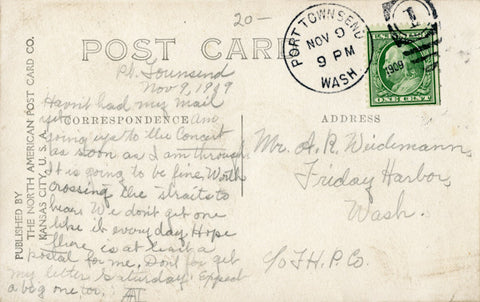 20-
POST CARD
PORT TOWNSEND
NOV 9
9 PM
1909
WASH.
ONE CENT
Pt. Townsend
Nov 9, 1909
Havnt had my mail
yet
CORRESPONDENCE
am
going up to the Concert
as soon as I am through.
It is going to be fine. Worth
crossing the straits to
hear. We dont get one
like it every day. Hope
there is at least a
postal for me. Dont forget
my letter Saturday. Expect
a big one too.
ADDRESS
Mr. A. R. Weidemann,
Friday Harbor,
Wash.
c/o F. H. P. Co.
PUBLISHED BY
THE NORTH AMERICAN POST CARD CO.
KANSAS CITY, U. S. A.